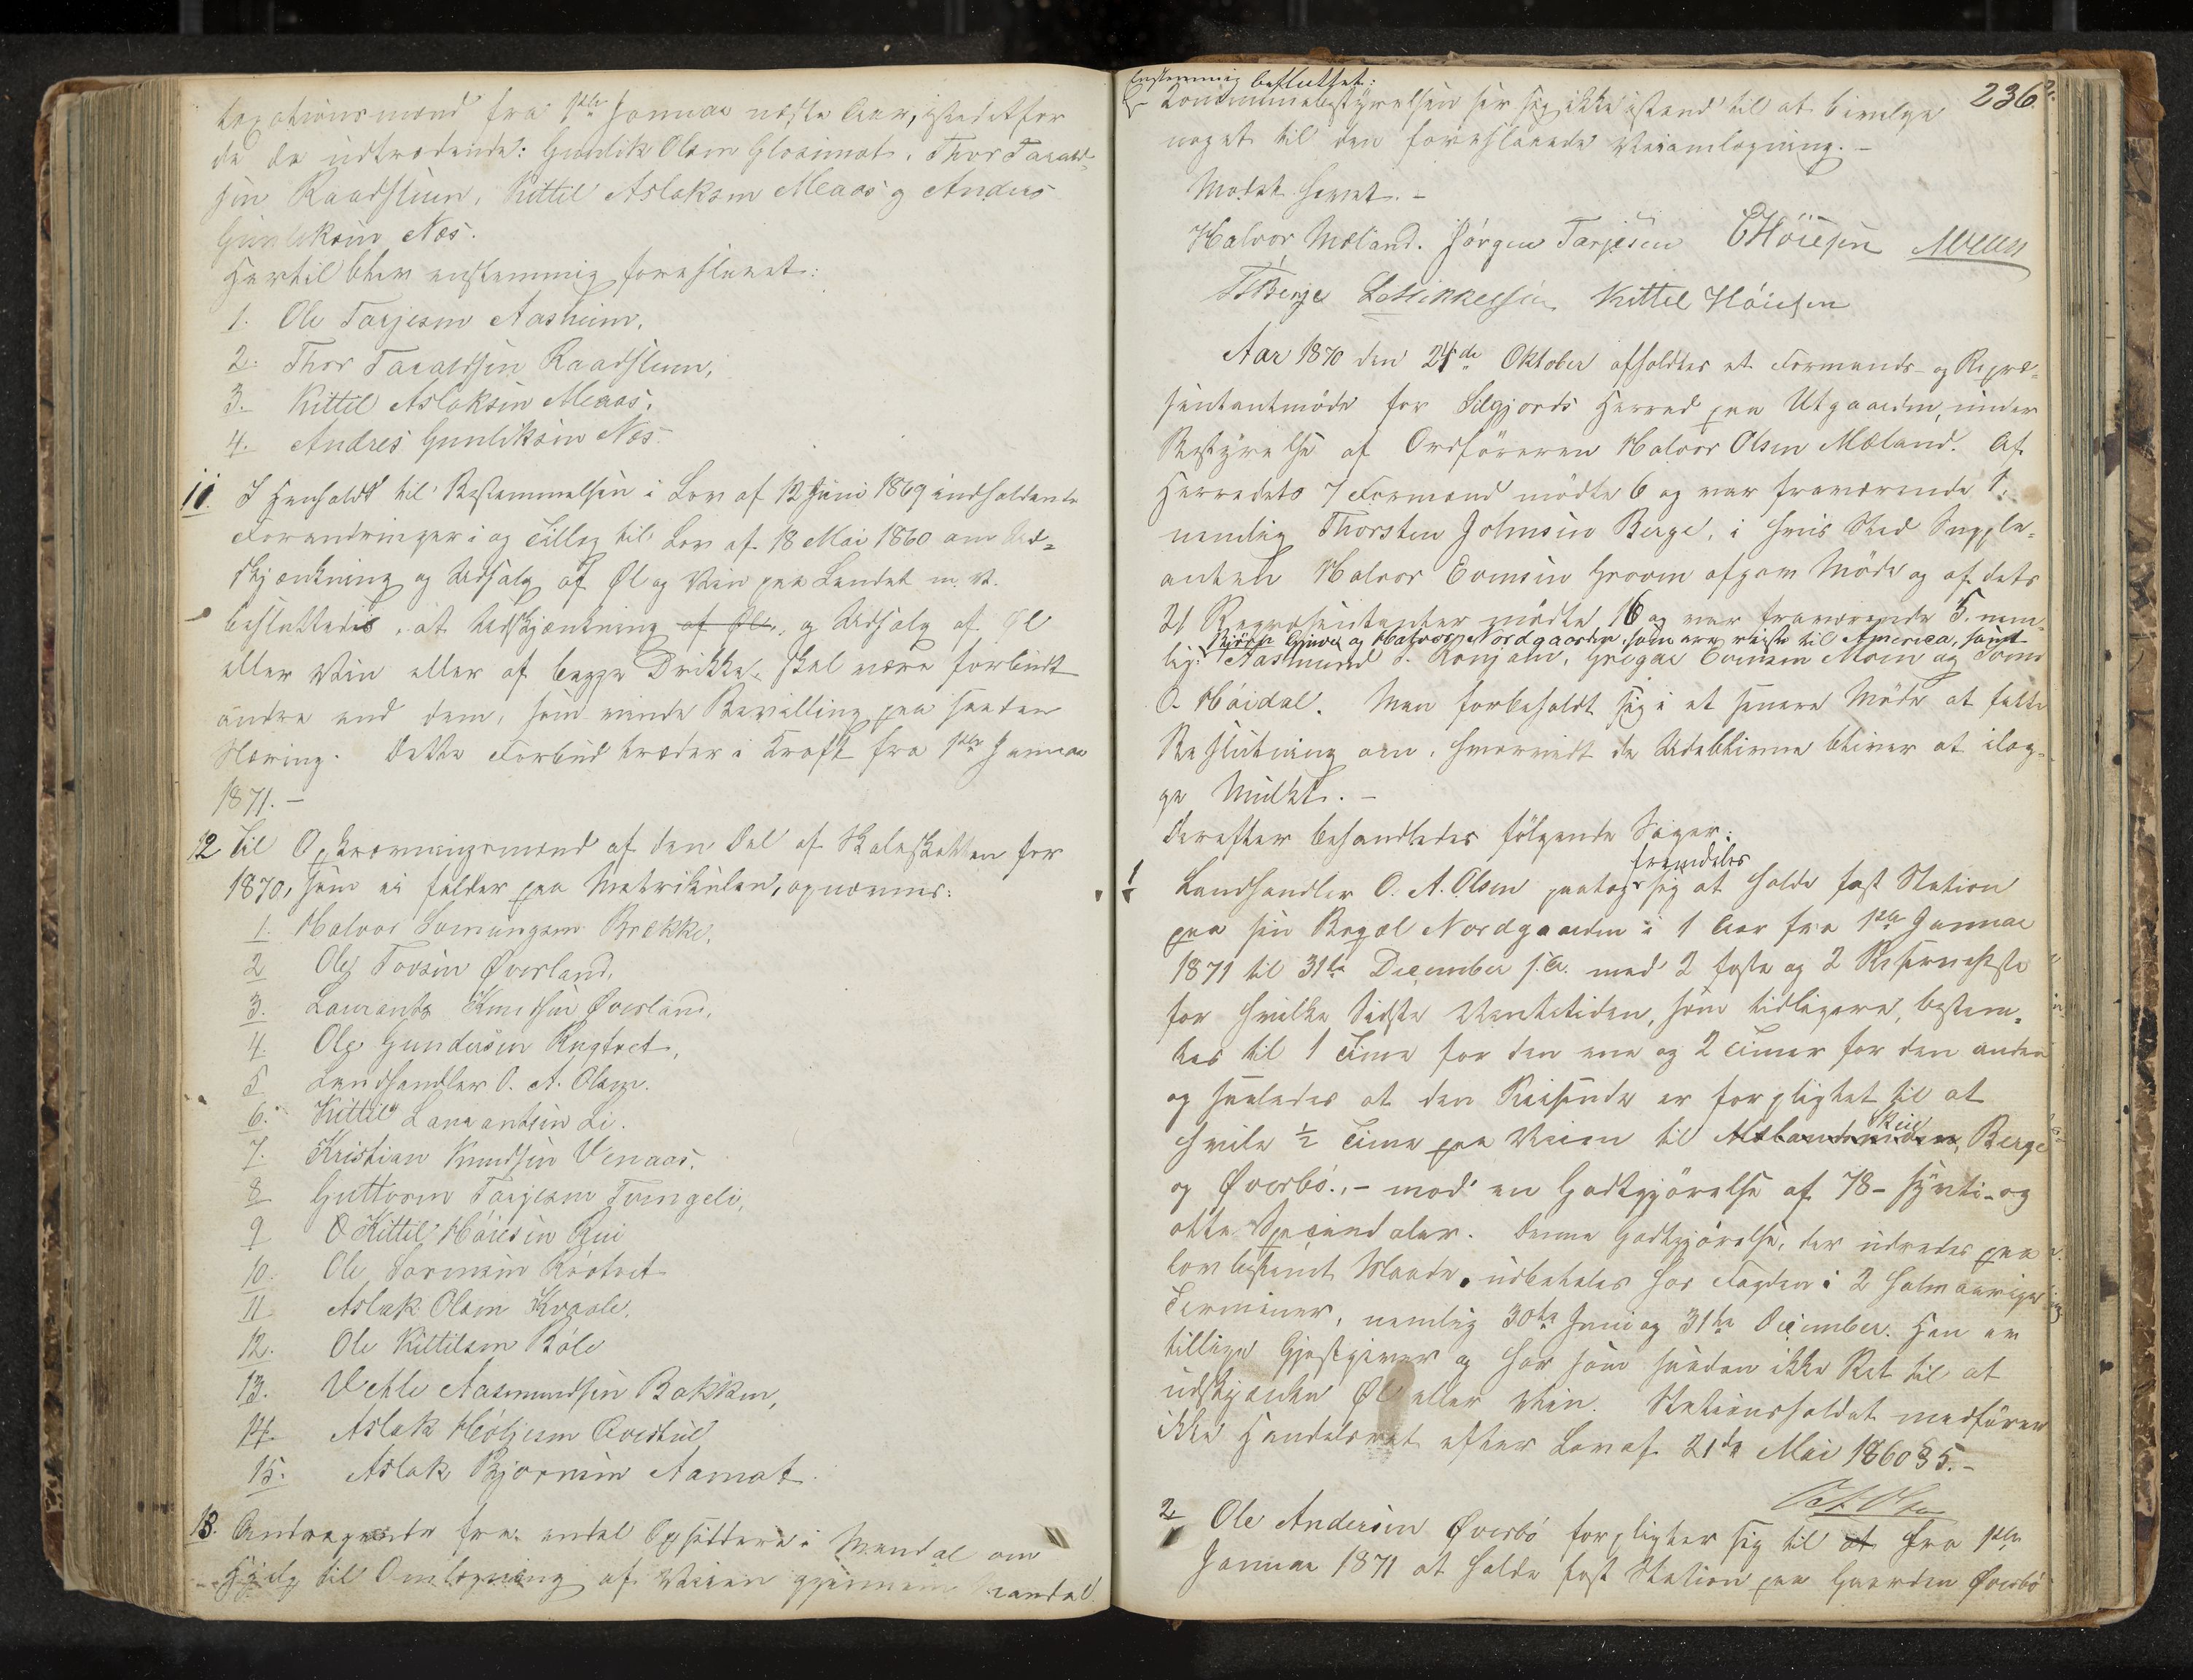 taxationsmænd fra 1ste Januar næste Aar, istedetfor
de da udtrædende: Gunlik Olsen Glosimot, Thor Tarald-
sen Raadsteen, Kittil Aslaksen Meaas og Anders
Gunliksen Næs.
Hertil blev enstemmig foreslaaet:
1. Ole Tarjesen Aasheim,
2. Thor Taraldsen Raadsteen,
3. Kittil Aslaksen Meaas,
4. Andres Gunliksen Næs.
11. I Henhold til Bestemmelsen i Lov af 12 Juni 1869 indholdende
Forandringer i og Tillæg til Lov af 18 Mai 1860 om Ud-
skjænkning og Udsalg af Øl og Vin paa Landet m. v.
besluttedes, at Udskjænkning af Øl, og Udsalg af Øl
eller Vin eller af begge Drikke, skal være forbudt
andre end dem, som vinde Bevilling paa saadan
Næring. Dette Forbud træder i Kraft fra 1ste Januar
1871. –
12 Til Opkrævningsmænd af den Del af Skoleskatten for
1870, som ei falder paa Matrikulen, opnævnes:
1. Halvor Sveinungsen Brække,
2 Olej Tovsen Øverland,
3. Laurants Knudsen Øverland,
4 Olej Gundersen Rugtvet,
5 Landhandler O. A. Olsen.
6. Kittil Laurantsen Li.
7. Kristian Knudsen Venaas.
8 Guttorm Tarjesen Tveingeli,
9 O Kittil Høiesen Rui
10. Ole Sørensen Røotvet
11 Aslak Olsen Kvaale.
12. Ole Kittilsen Bøle
13. Vetle Aasmundsen Bakken,
14. Aslak Høljesen Overbul
15. Aslak Bjørnsen Aamot.
13. Andragende fra endel Opsiddere i Mandal om
Hjelp til Omlægning af Veien gjennem Mandal
Enstemmig besluttet:
236
Kommunebestyrelsen ser sig ikke istand til at bevilge
noget til den foreslaaede Veiomlægning. –
Mødet hævet. –
Halvor Mæland. Jørgen Tarjesen EHöiesen
TJBerge LMikkelsen Kittel Höiesen
Aar 1870 den 24de Oktober afholdtes et Formands- og Repræ-
sentantmöde for Silgjords Herred paa Utgaarden, under
Bestyrelse af Ordföreren Halvor Olsen Mæland. Af
Herredets 7 Formænd mödte 6 og var fraværende 1,
nemlig Thorsten Johnsen Berge, i hvis Sted Supple-
anten Halvor Evensen Groven afgav Möde og af dets
21 Repræsentanter mödte 16 og var fraværende 5. nem-
Björn Gjivre og Halvor Nordgaarden, som ere reiste til America, samt
lig: Aasmund S. Ronjom, Gregar Evensen Moen og Svend
O. Höidal. Man forbeholdt sig i et senere Möde at fatte
Beslutning om, hvorvidt de Udeblivne bliver at ilæg-
ge Mulkt. –
Derefter behandledes fölgende Sager:
fremdeles
1 Landhandler O. A. Olsen paatog sig at holde fast Station
paa sin Bopæl Nordgaarden i 1 Aar fra 1ste Januar
1871 til 31te December s. A. med 2 faste og 2 Reserveheste
for hvilke Sidste Ventetiden, som tidligere, bestem-
tes til 1 Time for den ene og 2 Timer for den anden
og saaledes at den Reisende er forpligtet til at
Skeie
hvile ½ Time paa Veien til Berge
og Øverbö., – mod en Godtgjörelse af 78 – sytti- og
otte Speciedaler. Denne Godtgjörelse, der udredes paa
lovbestemt Maade, udbetales hos Fogden i 2 halvaarige
Terminer, nemlig 30te Juni og 31te December. Han er
tillige Gjestgiver og har som saadan ikke Ret til at
udskjænke Öl eller Vin. Stationsholdet medförer
ikke Handelsret efter Lov af 21de Mai 1860 § 5. –
O A Olsen
2 Ole Andersen Øverbö forpligter sig til at fra 1ste
Januar 1871 at holde fast Station paa Gaarden Øverbö